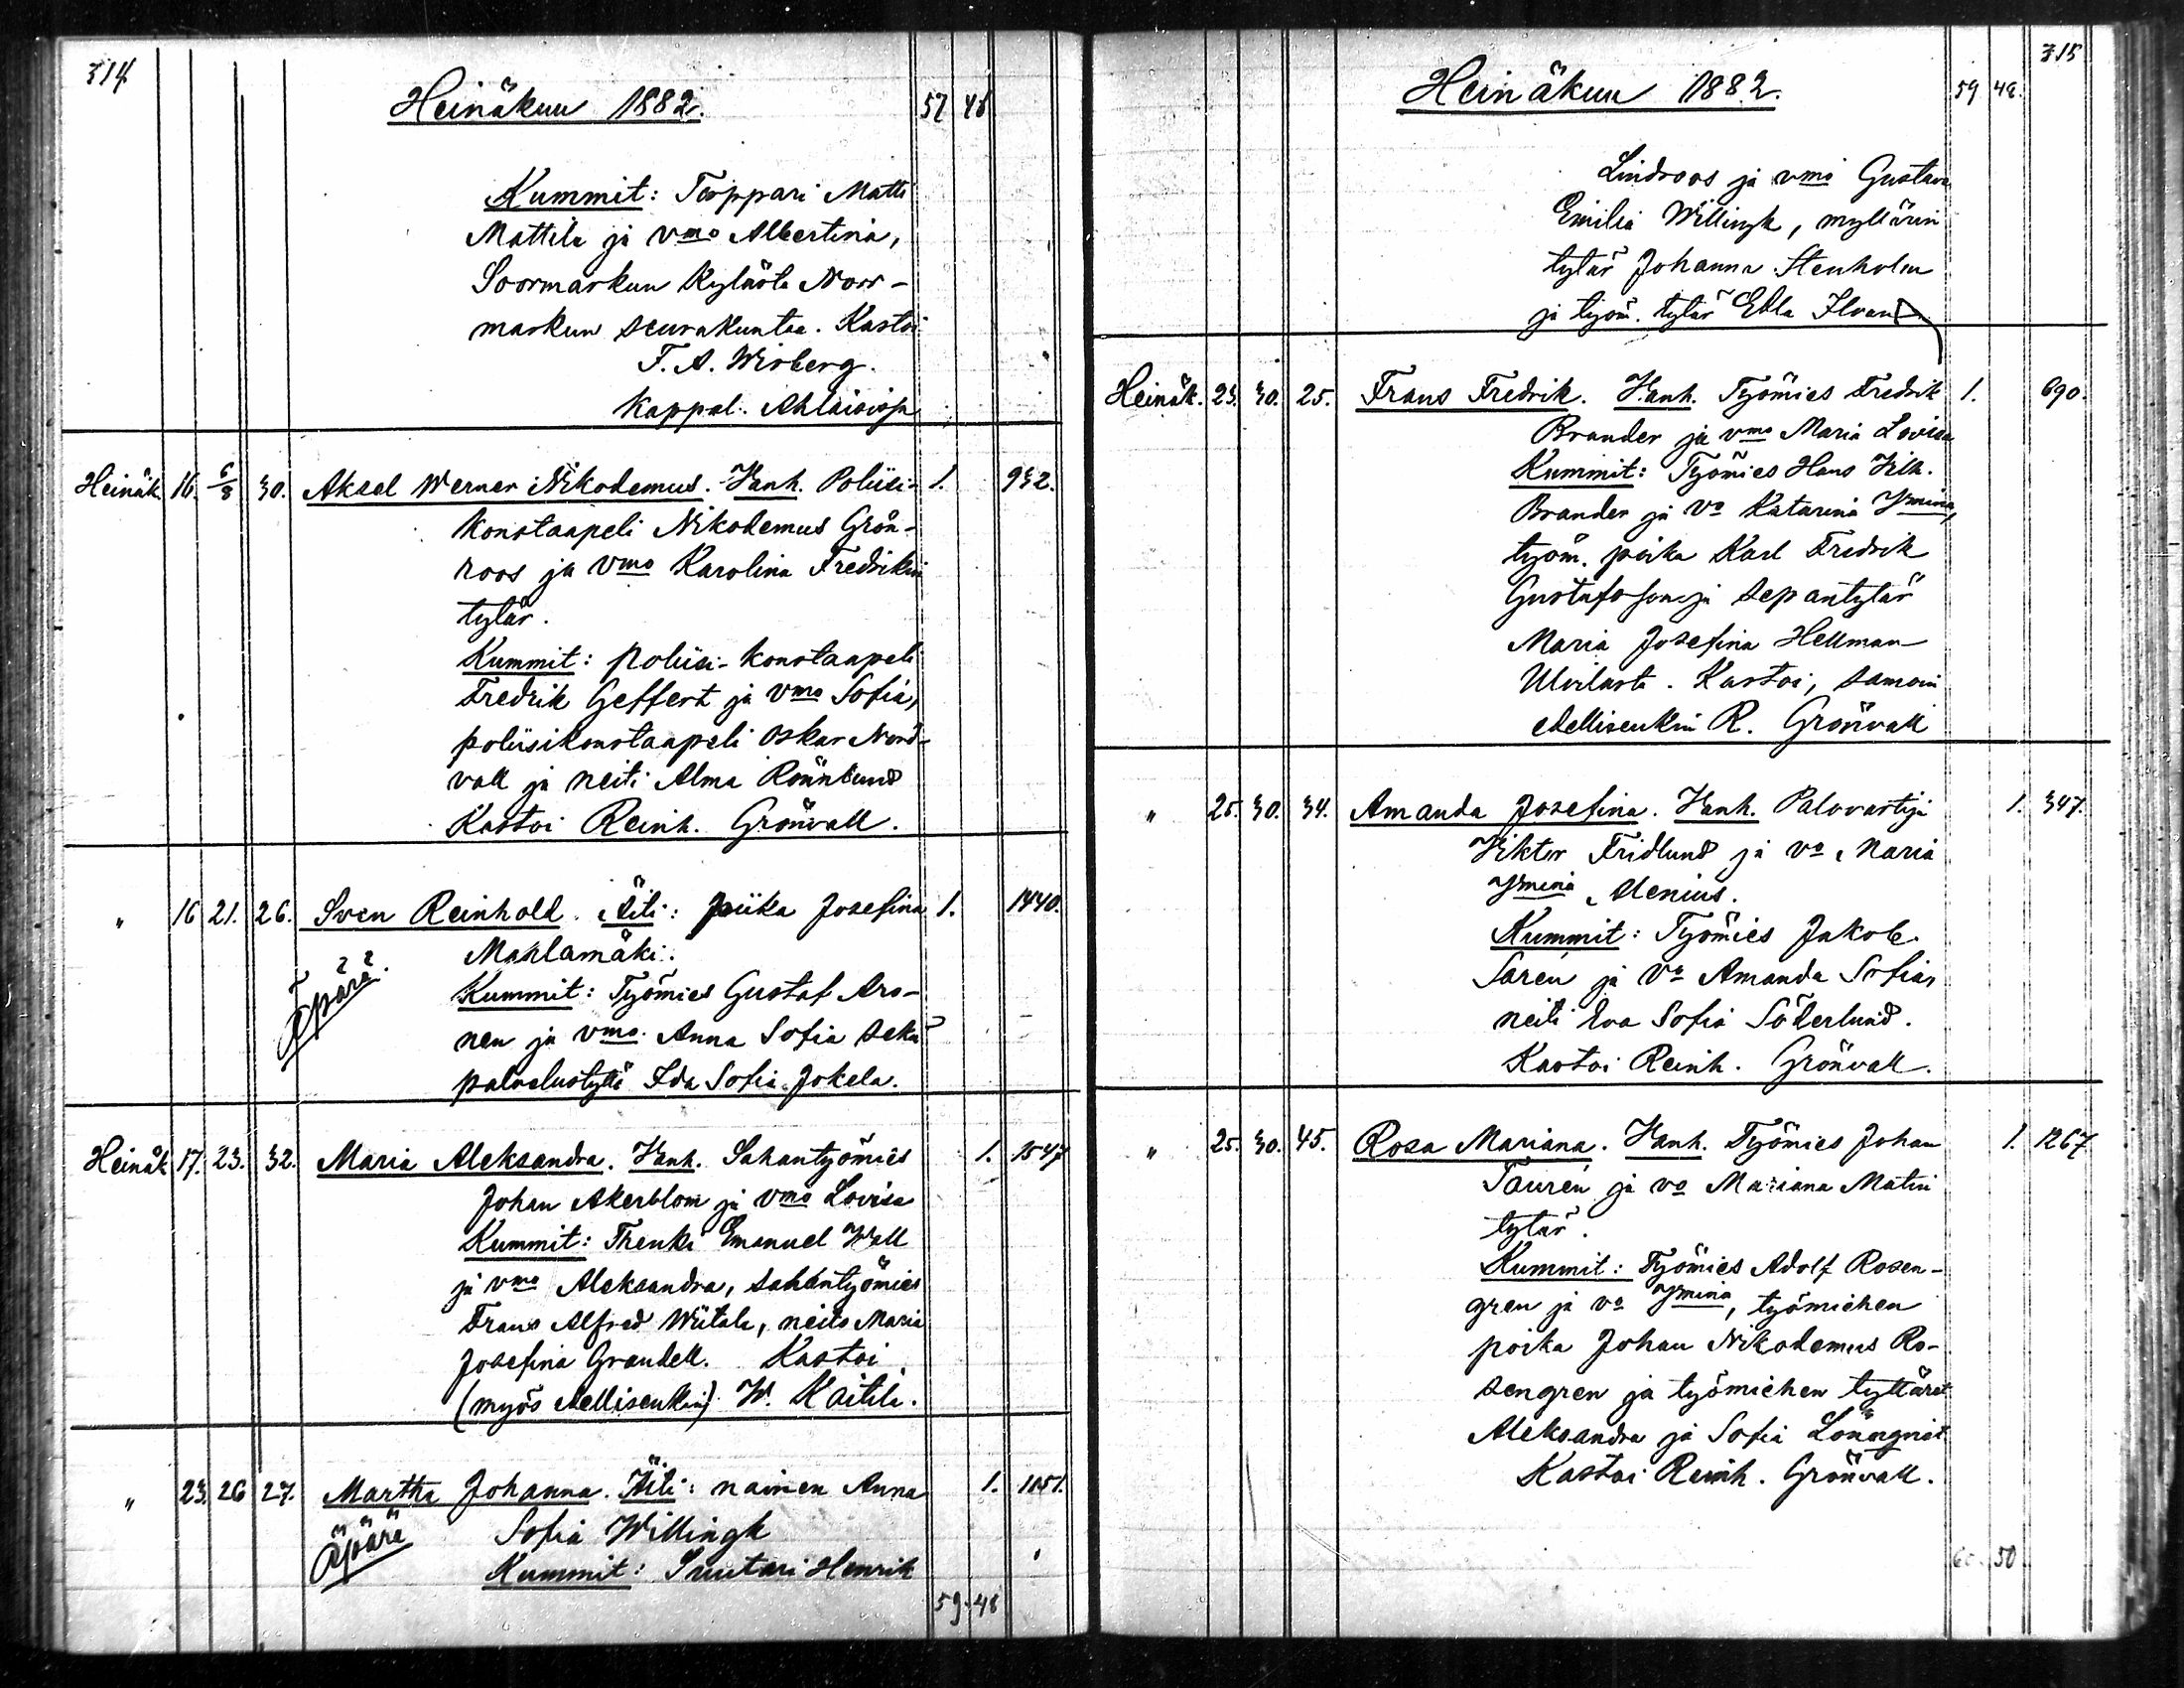 314
Heinäkuu 1882.
57 46
Kummit: Torppari Matti
Mattila ja vmo Albertina,
Soormarkun kylästä Norr-
markun seurakuntaa. Kastoi
F. A. Wirberg.
Kappal. Ahlaisissa
Heinäk. 16. 6/8 30. Aksel Werner Nikodemus. Vanh. Poliisi- 1. 932.
konstaapeli Nikodemus Grön-
roos ja vmo Karolina Fredrikin
tytär.
Kummit: poliisi-konstaapeli
Fredrik Geffert ja vmo Sofia,
poliisikonstaapeli Oskar Nord-
vall ja neiti Alma Rönnlund
Kastoi Reinh. Grönvall.
" 16 21. 26. Sven Reinhold. Äiti: piika Josefina 1. 1440.
Mahlamäki.
Äpärä.
Kummit: Työmies Gustaf Aro-
nen ja vmo. Anna Sofia sekä
palvelustyttö Ida Sofia Jokela.
Heinäk 17. 23. 32. Maria Aleksandra. Vanh. Sahantyömies 1. 1547
Johan Akerblom ja vmo Lovisa
Kummit: Renki Emanuel Wall
ja vmo Aleksandra, sahantyömies
Frans Alfred Wiitala, neito Maria
Josefina Grandell. Kastoi
(myös edellisenkin) W. Kaitila.
" 23. 26 27. Martha Johanna. Äiti: nainen Anna 1. 1151.
Äpärä
Sofia Willingk
Kummit: Suutari Henrik
59. 48
315
Heinäkuu 1882.
59 48.
Lindroos ja vmo Gustava
Emilia Willingk, myllärin
tytär Johanna Stenholm
ja työm. tytär Ebla
Heinäk. 23. 30. 25. Frans Fredrik. Vanh. Työmies Fredrik 1. 690.
Brander ja vmo Maria Lovisa
Kummit: Työmies Hans Vilh.
Brander ja vo Katarina Vmina,
työm. poika Karl Fredrik
Gustafsson ja sepäntytär
Maria Josefina Hellman
Ulvilasta. Kastoi, samoin
edellisenkin R. Grönvall
" 25. 30. 34. Amanda Josefina. Vanh. Palovartija 1. 347.
Viktor Fridlund ja vo Maria
Vmina Alenius.
Kummit: Työmies Jakob
Saren ja vo Amanda Sofia,
neiti Eva Sofia Söderlund.
Kastoi Reinh. Grönvall.
" 25. 30. 45. Rosa Mariana. Vanh. Työmies Johan 1. 1267.
Tauren ja vo Mariana Matin
tytär.
Kummit: Työmies Adolf Rosen-
gren ja vo Vmina, työmiehen
poika Johan Nikodemus Ro-
sengren ja työmiehen tyttäret
Aleksandra ja Sofia Lönnqvist
Kastoi Reinh. Grönvall.
60. 50